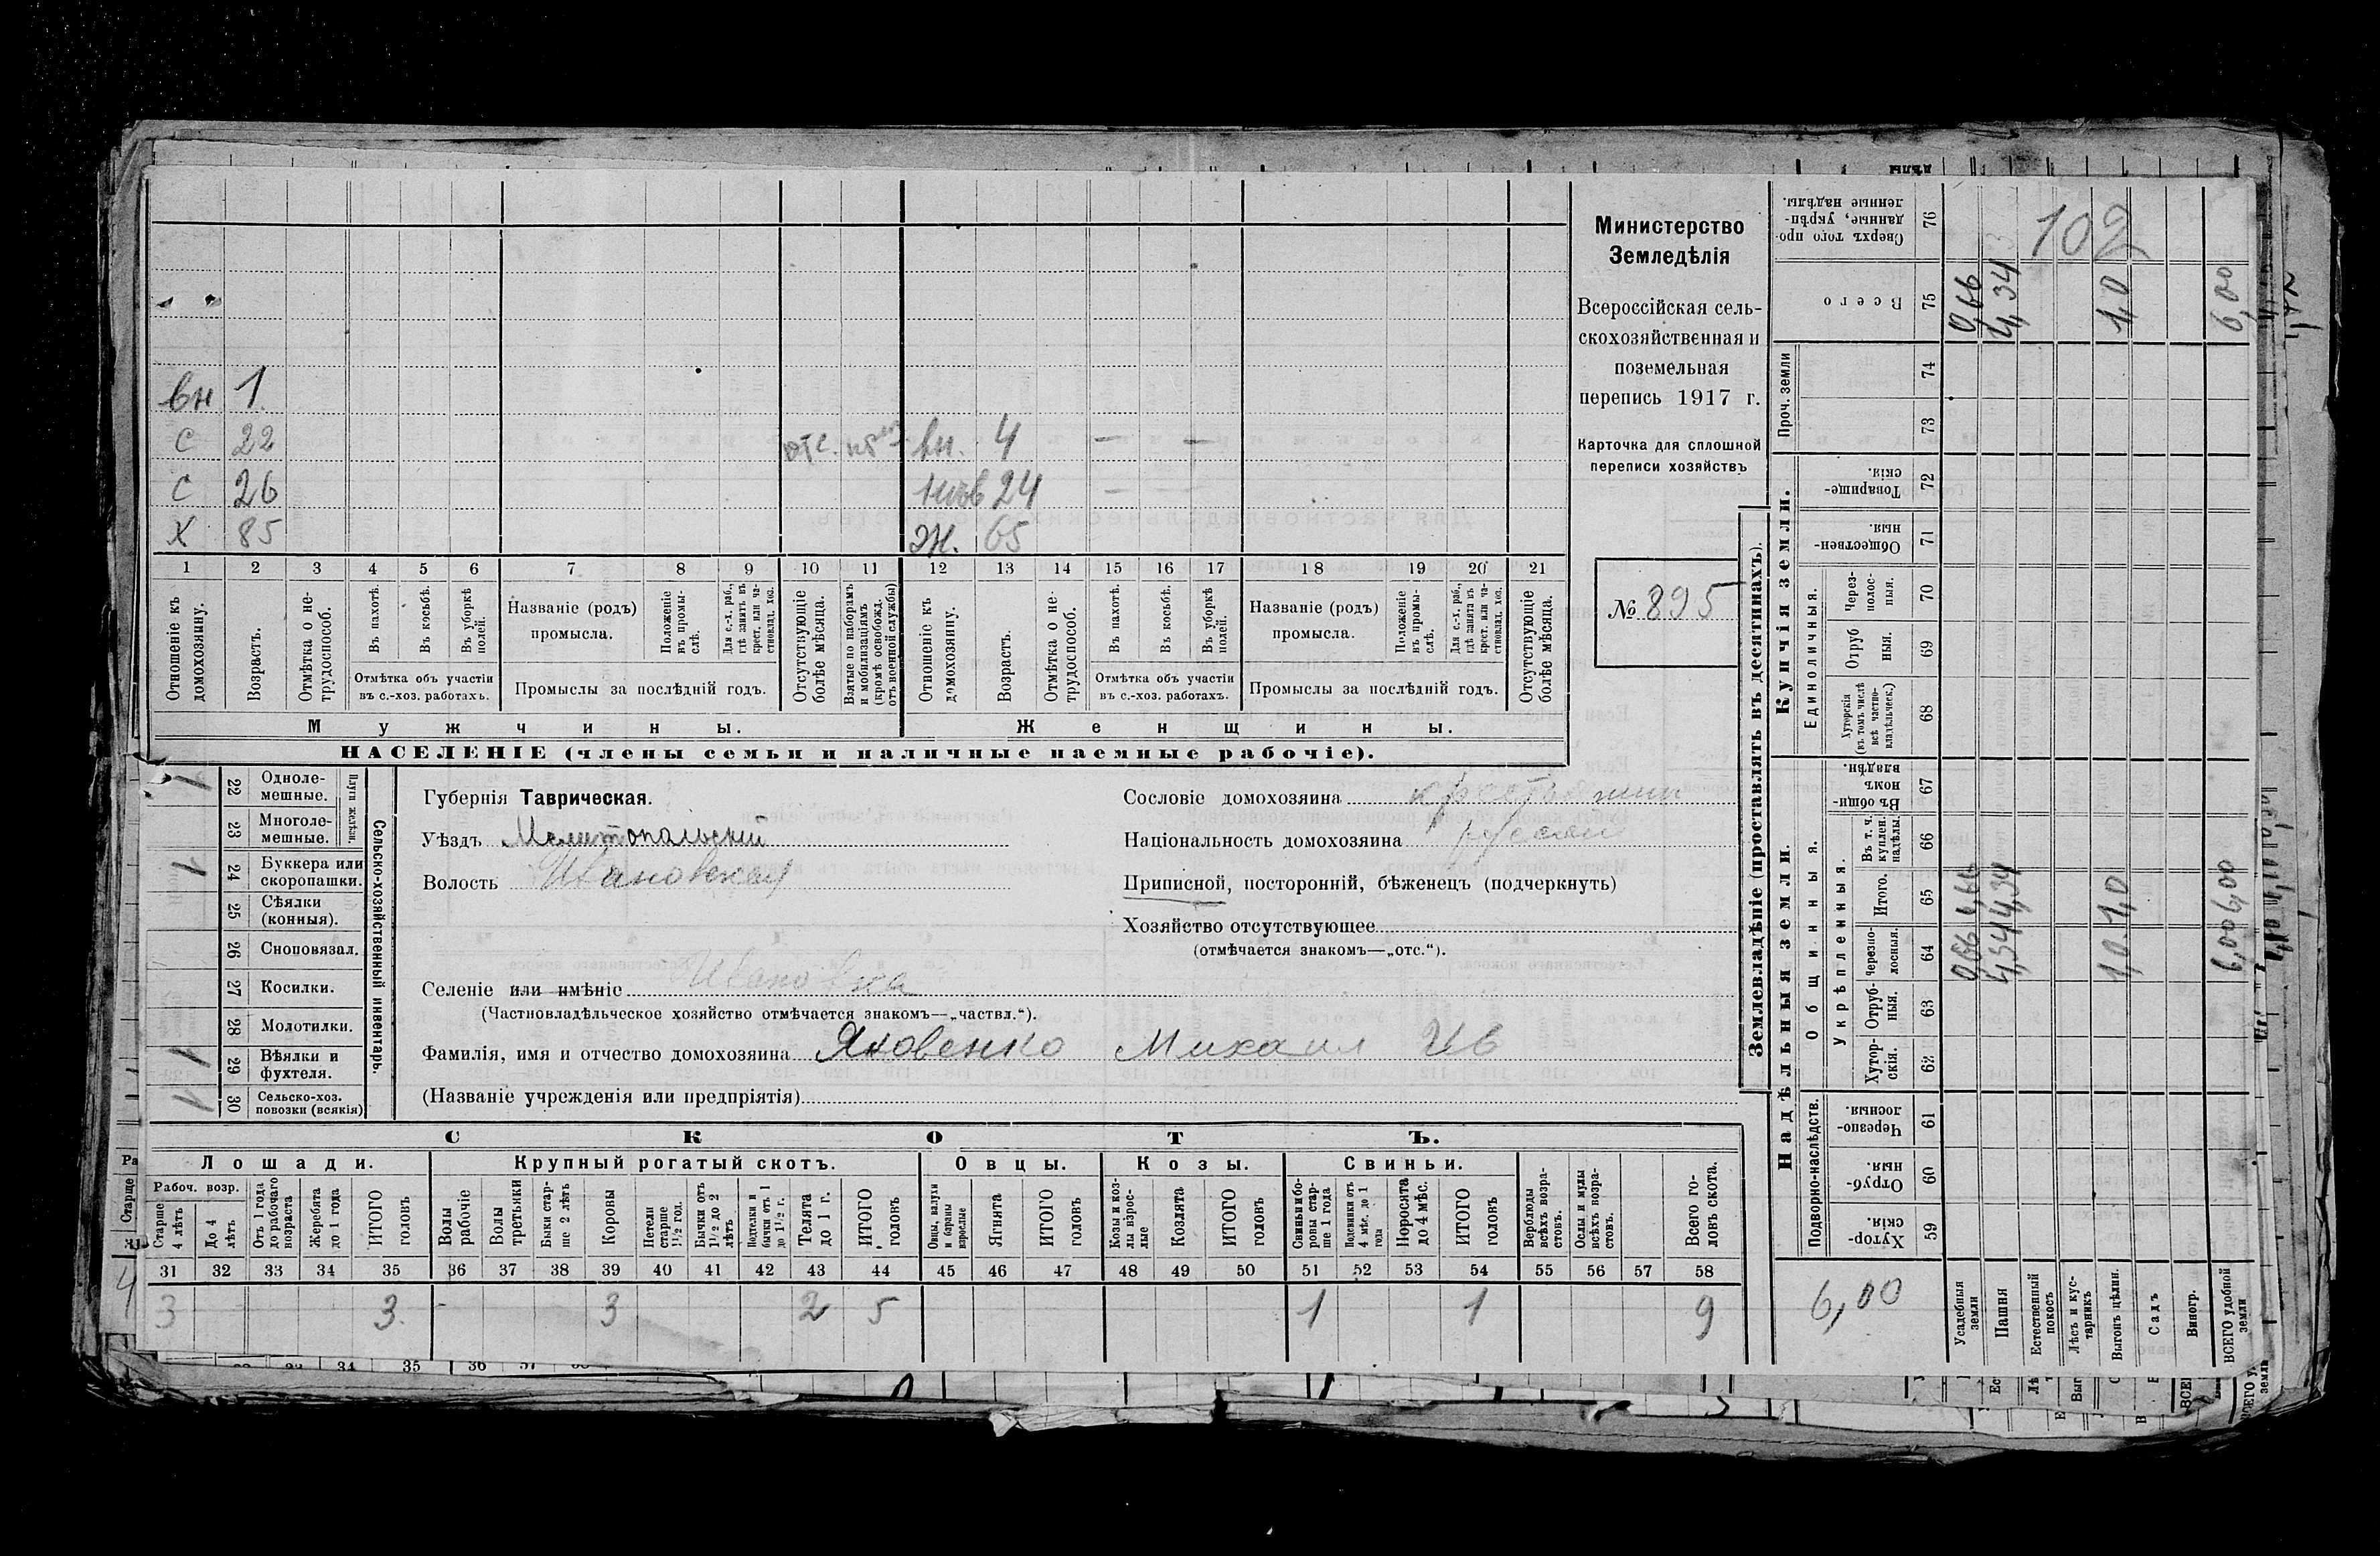 вн 1
С 22 отс. вн. 4 — —
С 26 24 — —
Х 85 ж. 65
1 2 3 4 5 6 7 8 9 10 11 12 13 14 15 16 17 18 19 20 21
Отношеніе къ домохозяину.
Возрастъ.
Отмѣтка о не-
трудоспособ.
Въ пахотѣ.
Въ косьбѣ.
Въ уборкѣ полей.
Отмѣтка объ участіи
въ с.-хоз. работахъ.
Названіе (родъ)
промысла.
Положеніе въ промы-
слѣ.
Для с.-х. раб., гдѣ занятъ въ крест. или ча-
стновлад. хоз.
Промыслы за послѣдній годъ.
Отсутствующіе болѣе мѣсяца.
Взятые по наборамъ и мобилизаціямъ (кромѣ освобожд. отъ военной службы)
Отношеніе къ домохозяину.
Возрастъ.
Отмѣтка о не-
трудоспособ.
Въ пахотѣ.
Въ косьбѣ.
Въ уборкѣ полей.
Отмѣтка объ участіи
въ с.-хоз. работахъ.
Названіе (родъ)
промысла.
Положеніе въ промы-
слѣ.
Для с.-х. раб., гдѣ занята въ крест. или ча-
стновлад. хоз.
Промыслы за послѣдній годъ.
Отсутствующіе болѣе мѣсяца.
Мужчины. Женщины.
НАСЕЛЕНІЕ (члены семьи и наличные наемные рабочіе).
Министерство
Земледѣлія
Всероссійская сель-
скохозяйственная и
поземельная
перепись 1917 г.
Карточка для сплошной
переписи хозяйствъ
№ 895
22 Одноле-
мешные.
23 Многоле-
мешные.
Плуги желѣзн.
24 Буккера или
скоропашки.
25 Сѣялки
(конныя).
26 Сноповязал.
27 Косилки.
28 Молотилки.
29 Вѣялки и
фухтеля.
30 Сельско-хоз.
повозки (всякія)
Сельско-хозяйственный инвентарь.
Губернія Таврическая.
Уѣздъ Мелитопольскій
Волость Ивановская
Сословіе домохозяина крестьянин
Національность домохозяина русский
Приписной, посторонній, бѣженецъ (подчеркнуть)
Хозяйство отсутствующее
(отмѣчается знакомъ—„отс.“).
Селеніе или имѣніе Ивановка
(Частновладѣльческое хозяйство отмѣчается знакомъ—„частвл.“).
Фамилія, имя и отчество домохозяина Яковенко Михаил Ив
(Названіе учрежденія или предпріятія)
СКОТЪ.
Лошади. Крупный рогатый скотъ. Овцы. Козы. Свиньи.
Рабоч. возр.
Старше 4 лѣтъ
До 4 лѣтъ
Отъ 1 года до рабочаго возраста
Жеребята до 1 года
ИТОГО головъ
Волы рабочіе
Волы третьяки
Быки стар-
ше 2 лѣтъ
Коровы
Нетели старше 1½ год.
Бычки отъ 1½ до 2 лѣтъ
Подтелки и бычки отъ 1 до 1½ г.
Телята до 1 г.
ИТОГО головъ
Овцы, валухи и бараны взрослые
Ягнята
ИТОГО головъ
Козы и коз-
лы взрос-
лые
Козлята
ИТОГО головъ
Свиньи и бо-
ровы стар-
ше 1 года
Подсвинки отъ 4 мѣс. до 1 года
Поросята до 4 мѣс.
ИТОГО головъ
Верблюды всѣхъ возра-
стовъ.
Ослы и мулы всѣхъ возра-
стовъ.
Всего го-
ловъ скота.
31 32 33 34 35 36 37 38 39 40 41 42 43 44 45 46 47 48 49 50 51 52 53 54 55 56 57 58
3 3 - 3 2 5 1 1 9
Землевладѣніе (проставлять въ десятинахъ).
Купчія земли.
Надѣльныя земли.
Сверхъ того про-
данные, укрѣп-
ленные надѣлы.
76
102
Всего
75
0,66 4,34 1,0 6,00
Проч. земли
74
73
Товарище-
скія.
72
Обществен-
ныя.
71
Единоличныя.
Через-
полос-
ныя.
70
Отруб
ныя.
69
Хуторскія (въ томъ числѣ всѣ частно-
владѣльческ.)
68
Въ общи-
номъ владѣн.
67
Общинныя.
Укрѣпленныя.
Въ т. ч. куплен. надѣлы.
66
Итого.
65
0,66 4,34 1,0 6,00
Черезпо-
лосныя.
64
0,66 4,34 1,0 6,00
Отруб-
ныя.
63
Хутор-
скія.
62
Подворно-наслѣдств.
Черезпо-
лосныя.
61
Отруб-
ныя.
60
Хутор-
скія.
59
6,00
Усадебныя земли
Пашня
Естественный покосъ
Лѣсъ и кус-
тарникъ
Выгонъ цѣлин.
Садъ
Виногр.
ВСЕГО удобной земли